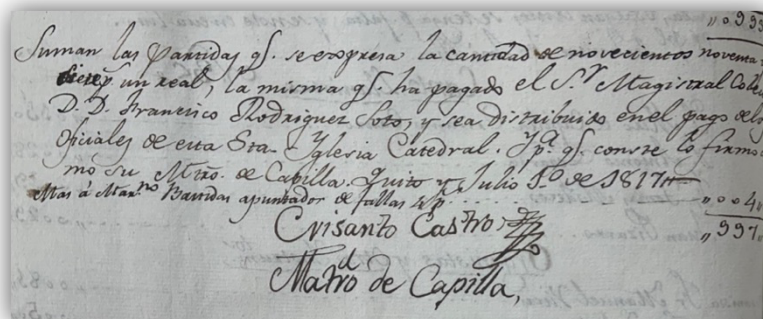 ,,0993
Suman las Partidas qᵉ. se expresa la cantidad de novecientos noventa
y un real, la misma qᵉ. ha pagado el S.ʳ Magistral
D.D. Francisco Rodriguez Soto, y sea distribuido en el pago de los
Oficiales de esta Sta. Yglesia Catedral. Y pᵃ. qᵉ conste lo firmo
mo su Mtro. de Capilla. Quito y Julio 1.º de 1817
Mas á Mar.ⁿᵒ Bastidas apuntador de fallas 4 p ,,004,,
,,997,,
Crisanto Castro
Matrō de Capilla,